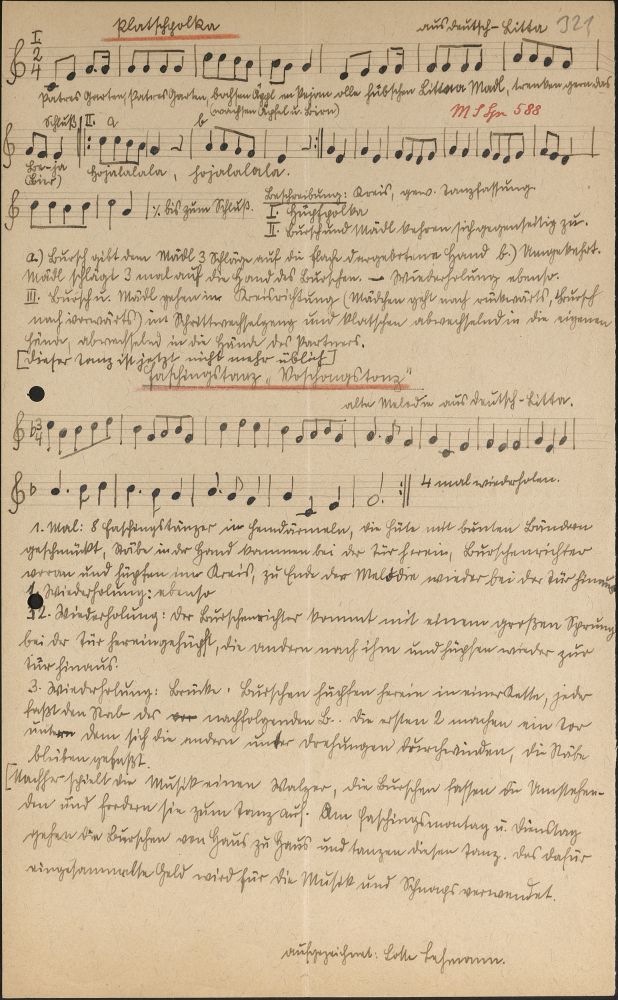 Klatschpolka
aus Deutsch-Litta 321
I.
2
4
Patres Garten, Patres Garten, wachsen Äppl en Bejran, olle hübschen Littaa Madl, trenken gern das
(wachsen Äpfel u. Birn)
M S Sp 588
Schluß II. a b
Bre-ja
(Bier) hojalalala, hojalalala.
bis zum Schluß.
Beschreibung: Kreis, gew. Tanzfassung
I. Hüpfpolka
II. Bursch und Mädl kehren sich gegenseitig zu.
a.) Bursch gibt dem Mädl 3 Schläge auf die flach dargebotene Hand b.) Umgekehrt.
Mädl schlägt 3 mal auf die Hand des Burschen. – Wiederholung ebenso.
III. Bursch u. Mädl gehen im Kreisrichtung (Mädchen geht nach rückwärts, Bursch
nach vorwärts) im Schrittwechselgang und Klatschen abwechselnd in die eigenen
Hände, abwechselnd in die Hände des Partners.
[Dieser Tanz ist jetzt nicht mehr üblich]
Faschingstanz „Voschongstonz"
alte Melodie aus Deutsch-Litta.
3
4
4 mal wiederholen.
1. Mal: 8 Faschingstänzer in Hemdärmeln, die Hüte mit bunten Bändern
geschmückt, Stäbe in der Hand kommen bei der Tür herein, Burschenrichter
voran und hüpfen im Kreis, zu Ende der Melodie wieder bei der Tür hinaus
1. Wiederholung: ebenso
2. Wiederholung: Der Burschenrichter kommt mit einem großen Sprung
bei der Tür hereingehüpft, die andern nach ihm und hüpfen wieder zur
Tür hinaus.
3. Wiederholung: Brücke. Burschen hüpfen herein in einer Kette, jeder
faßt den Stab des nachfolgenden B.. Die ersten 2 machen ein Tor
unter dem sich die andern unter Drehungen durchwinden, die Stäbe
bleiben gefaßt.
[Nachher spielt die Musik einen Walzer, die Burschen fassen die Umstehen-
den und fordern sie zum Tanz auf. Am Faschingsmontag u. Dienstag
gehen die Burschen von Haus zu Haus und tanzen diesen Tanz. Das dafür
eingesammelte Geld wird für die Musik und Schnaps verwendet.
aufgezeichnet: Lotte Lehmann.